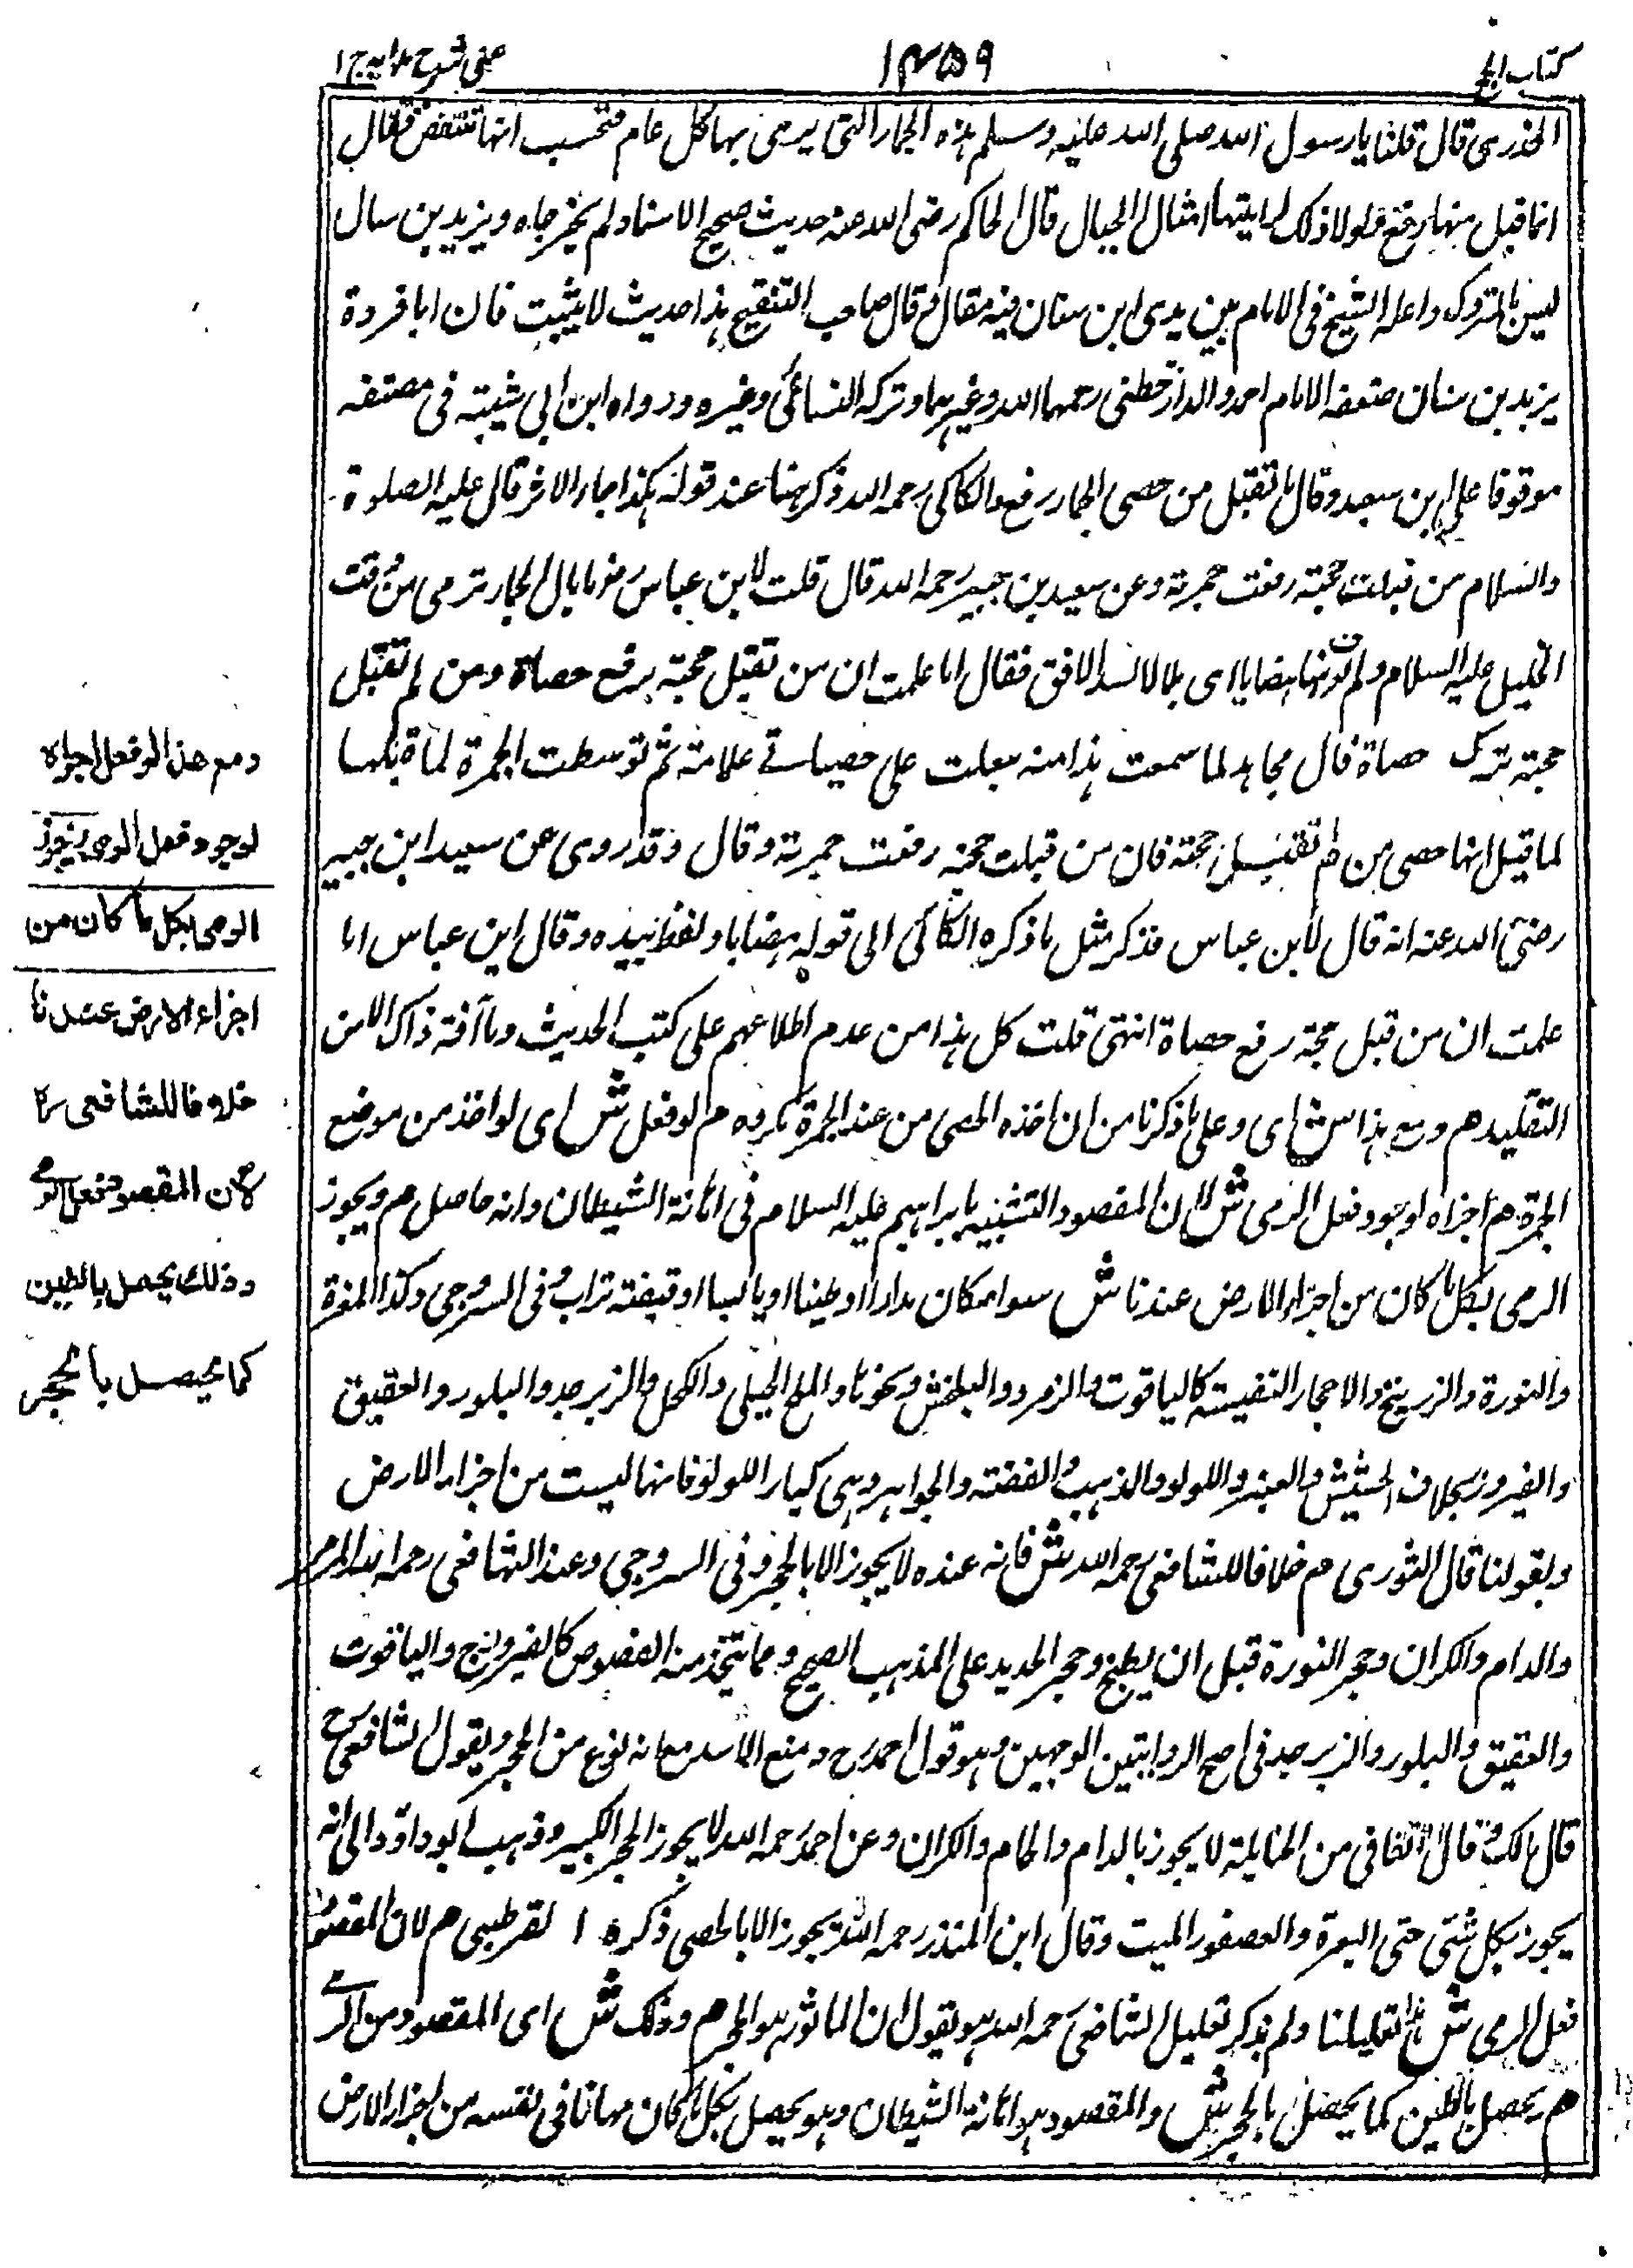 كتاب الحج
١٤٥٩
عيني شرح هدايه ج ١
الخدرى قال قلنا يا رسول الله صلى الله عليه وسلم هذه الجمار التى يرمى بها كل عام فنحسب انها تنتقص فقال
انما قبل منها رفع ولولا ذلك لرايتها امثال الجبال قال الحاكم رضى الله عنه حديث صحيح الاسناد ولم يخرجاه ويزيد بن سنان
ليس بالمتروك واعله الشيخ فى الامام بين يدى ابن سنان فيه مقال وقال صاحب التنقيح هذا حديث لا يثبت فان ابا فروة
يزيد بن سنان ضعفه الامام احمد والدارقطنى رحمهما الله وغيرهما وتركه النسائى وغيره ورواه ابن ابى شيبة فى مصنفه
موقوفا على ابن سعيد وقال ما تقبل من حصى الجمار رفع والكاكى رحمه الله ذكر هنا عند قوله هكذا جاء الاثر قال عليه الصلوة
والسلام من قبلت حجته رفعت جمرته وعن سعيد بن جبير رحمه الله قال قلت لابن عباس رض ما بال الجمار ترمى من وقت
الخليل عليه السلام ولم هضابا اى تلالا تسد الافق فقال اما علمت ان من تقبل حجته يرفع حصاة ومن لم تقبل
حجته ترك حصاة قال مجاهد لما سمعت هذا منه جعلت على حصياتى علامة ثم توسطت الجمرة
لما قيل انها حصى من لم تقبل حجته فان من قبلت حجته رفعت جمرته وقال وقد روى عن سعيد ابن جبير
رضى الله عنه انه قال لابن عباس فذكر مثل ما ذكره الكاكى الى قوله هضابا ولفظ وقال ابن عباس اما
علمت ان من قبل حجته رفع حصاة انتهى قلت كل هذا من عدم اطلاعهم على كتب الحديث وما آفة ذاك الا من
التقليد هم ومع هذا ش اى وعلى ما ذكرنا من ان اخذه الحصى من عند الجمرة مكروه م لو فعل ش اى لو اخذ من موضع
الجمرة هم اجزاه لوجود فعل الرمى ش لان المقصود التشبيه بابراهيم عليه السلام فى اهانة الشيطان وانه حاصل م ويجوز
الرمى بكل ما كان من اجزاء الارض عندنا ش سواء كان مدرا او طينا او يابسا او قبضة تراب وفى السروجى وكذا المغرة
والنورة والزرنيخ والاحجار النفيسة كالياقوت والزمرد والبلخش ونحوها والملح الجبلى والكحل والزبرجد والبلور والعقيق
والفيروزج بخلاف الحشيش والعنبر واللولو والذهب والفضة والجواهر وهى كبار اللولو فانها ليست من اجزاء الارض
وبقولنا قال الثورى م خلافا للشافعى رحمه الله ش فانه عنده لا يجوز الا بالحجر وفى السروجى وعند الشافعى رحمه الله المرمر
والبرام والكران وحجر النورة قبل ان يطبخ وحجر الحديد على المذهب الصحيح وما يتخذ منه الفصوص كالفيروزج والياقوت
والعقيق والبلور والزبرجد فى اصح الروايتين الوجهين وهو قول احمد رح ومنع الماسد مع انه نوع من الحجر وبقول الشافعى رح
قال مالك وقال من الحنابلة لا يجوز بالبرام والرخام والكران وعن احمد رحمه الله لا يجوز الحجر الكبير وذهب ابو داؤد الى انه
يجوز بكل شئى حتى البعرة والعصفور الميت وقال ابن المنذر رحمه الله لا يجوز الا بالحصى ذكره القرطبى هم لان المقصود
فعل الرمى ش هذا تعليلنا ولم يذكر تعليل الشافعى رحمه الله هو يقول ان الماثور هو الحجر م وذلك ش اى المقصود من الرمى
هم يحصل بالطين كما يحصل بالحجر ش والمقصود هو اهانة الشيطان وهو يحصل بكل ما كان مهانا فى نفسه من اجزاء الارض
ومع هذا لو فعل اجزاه
لوجود فعل الرمى ويجوز
الرمى بكل ما كان من
اجزاء الارض عندنا
خلافا للشافعى رح
لان المقصود فعل الرمى
وذلك يحصل بالطين
كما يحصل بالحجر